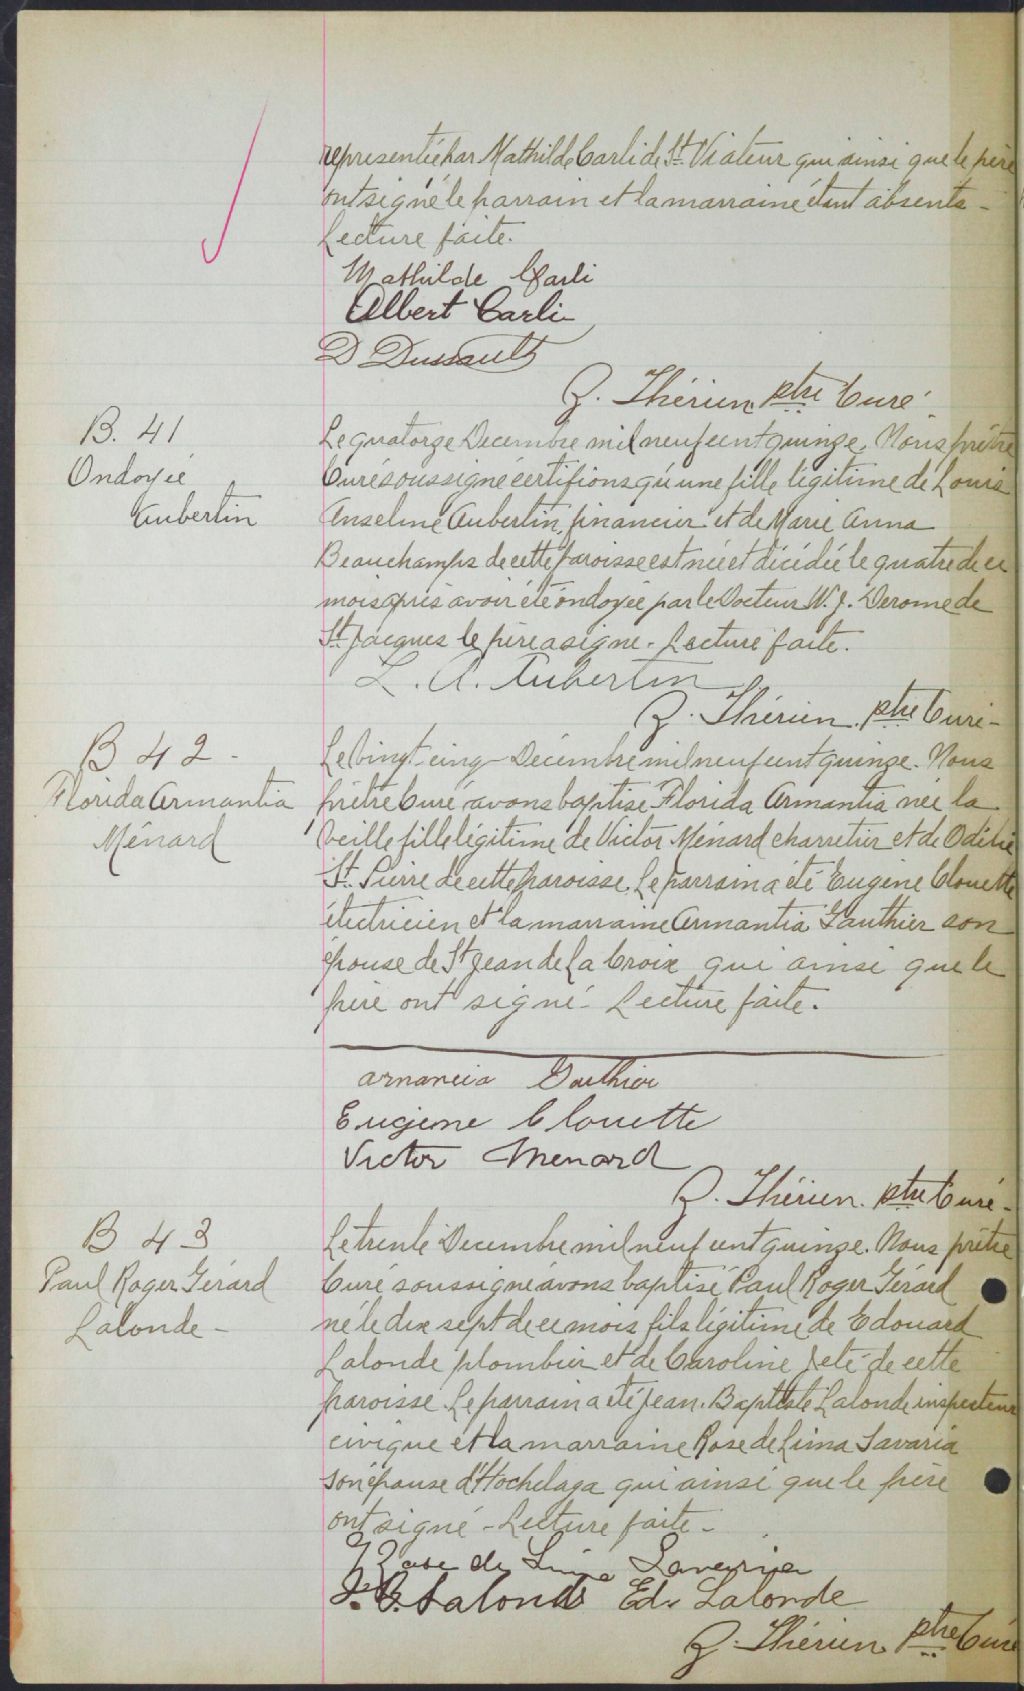 representée par Mathilde Carli de St Viateur qui ainsi que le père
ont signé le parrain et la marraine étant absents -
Lecture faite.
Mathilde Carli
Albert Carli
D Dussault
Z. Thérien ptre Curé
B. 41
Ondoyée
Aubertin
Le quatorze Decembre mil neuf cent quinze. Nous prêtre
Curé soussigné certifions qu'une fille légitime de Louis
Anselme Aubertin, financier et de Marie Anna
Beauchamps de cette paroisse est née et décédée le quatre de ce
mois après avoir été ondoyée par le Docteur W. J. Derome de
St Jacques le père a signé - Lecture faite.
L. A. Aubertin
Z. Thérien. ptre Curé -
B 42 -
Florida Armantia
Ménard
Le Vingt-cinq Décembre mil neuf cent quinze. Nous
prêtre Curé avons baptisé Florida Armantia née la
veille fille légitime de Victor Ménard charretier et de Odélie
St. Pierre de cette paroisse. Le parrain a été Eugène Clouette
électricien et la marraine Armantia Gauthier son
épouse de St Jean de la Croix qui ainsi que le
père ont signé - Lecture faite.
armancia Gauthier
Eugene Clouette
Victor Menard
Z. Thérien. ptre Curé -
B 43
Paul Roger Gérard
Lalonde -
Le trente Decembre mil neuf cent quinze. Nous prêtre
Curé soussigné avons baptisé Paul Roger Gérard
né le dix sept de ce mois fils légitime de Edouard
Lalonde plombier et de Caroline Jeté de cette
paroisse. Le parrain a été Jean. Baptiste Lalonde inspecteur
civique et la marraine Rose de Lima Savaria
son épouse d'Hochelaga qui ainsi que le père
ont signé - Lecture faite -
Rose de Lima Savaria
J. B. Lalonde Ed. Lalonde
Z. Thérien ptre Curé